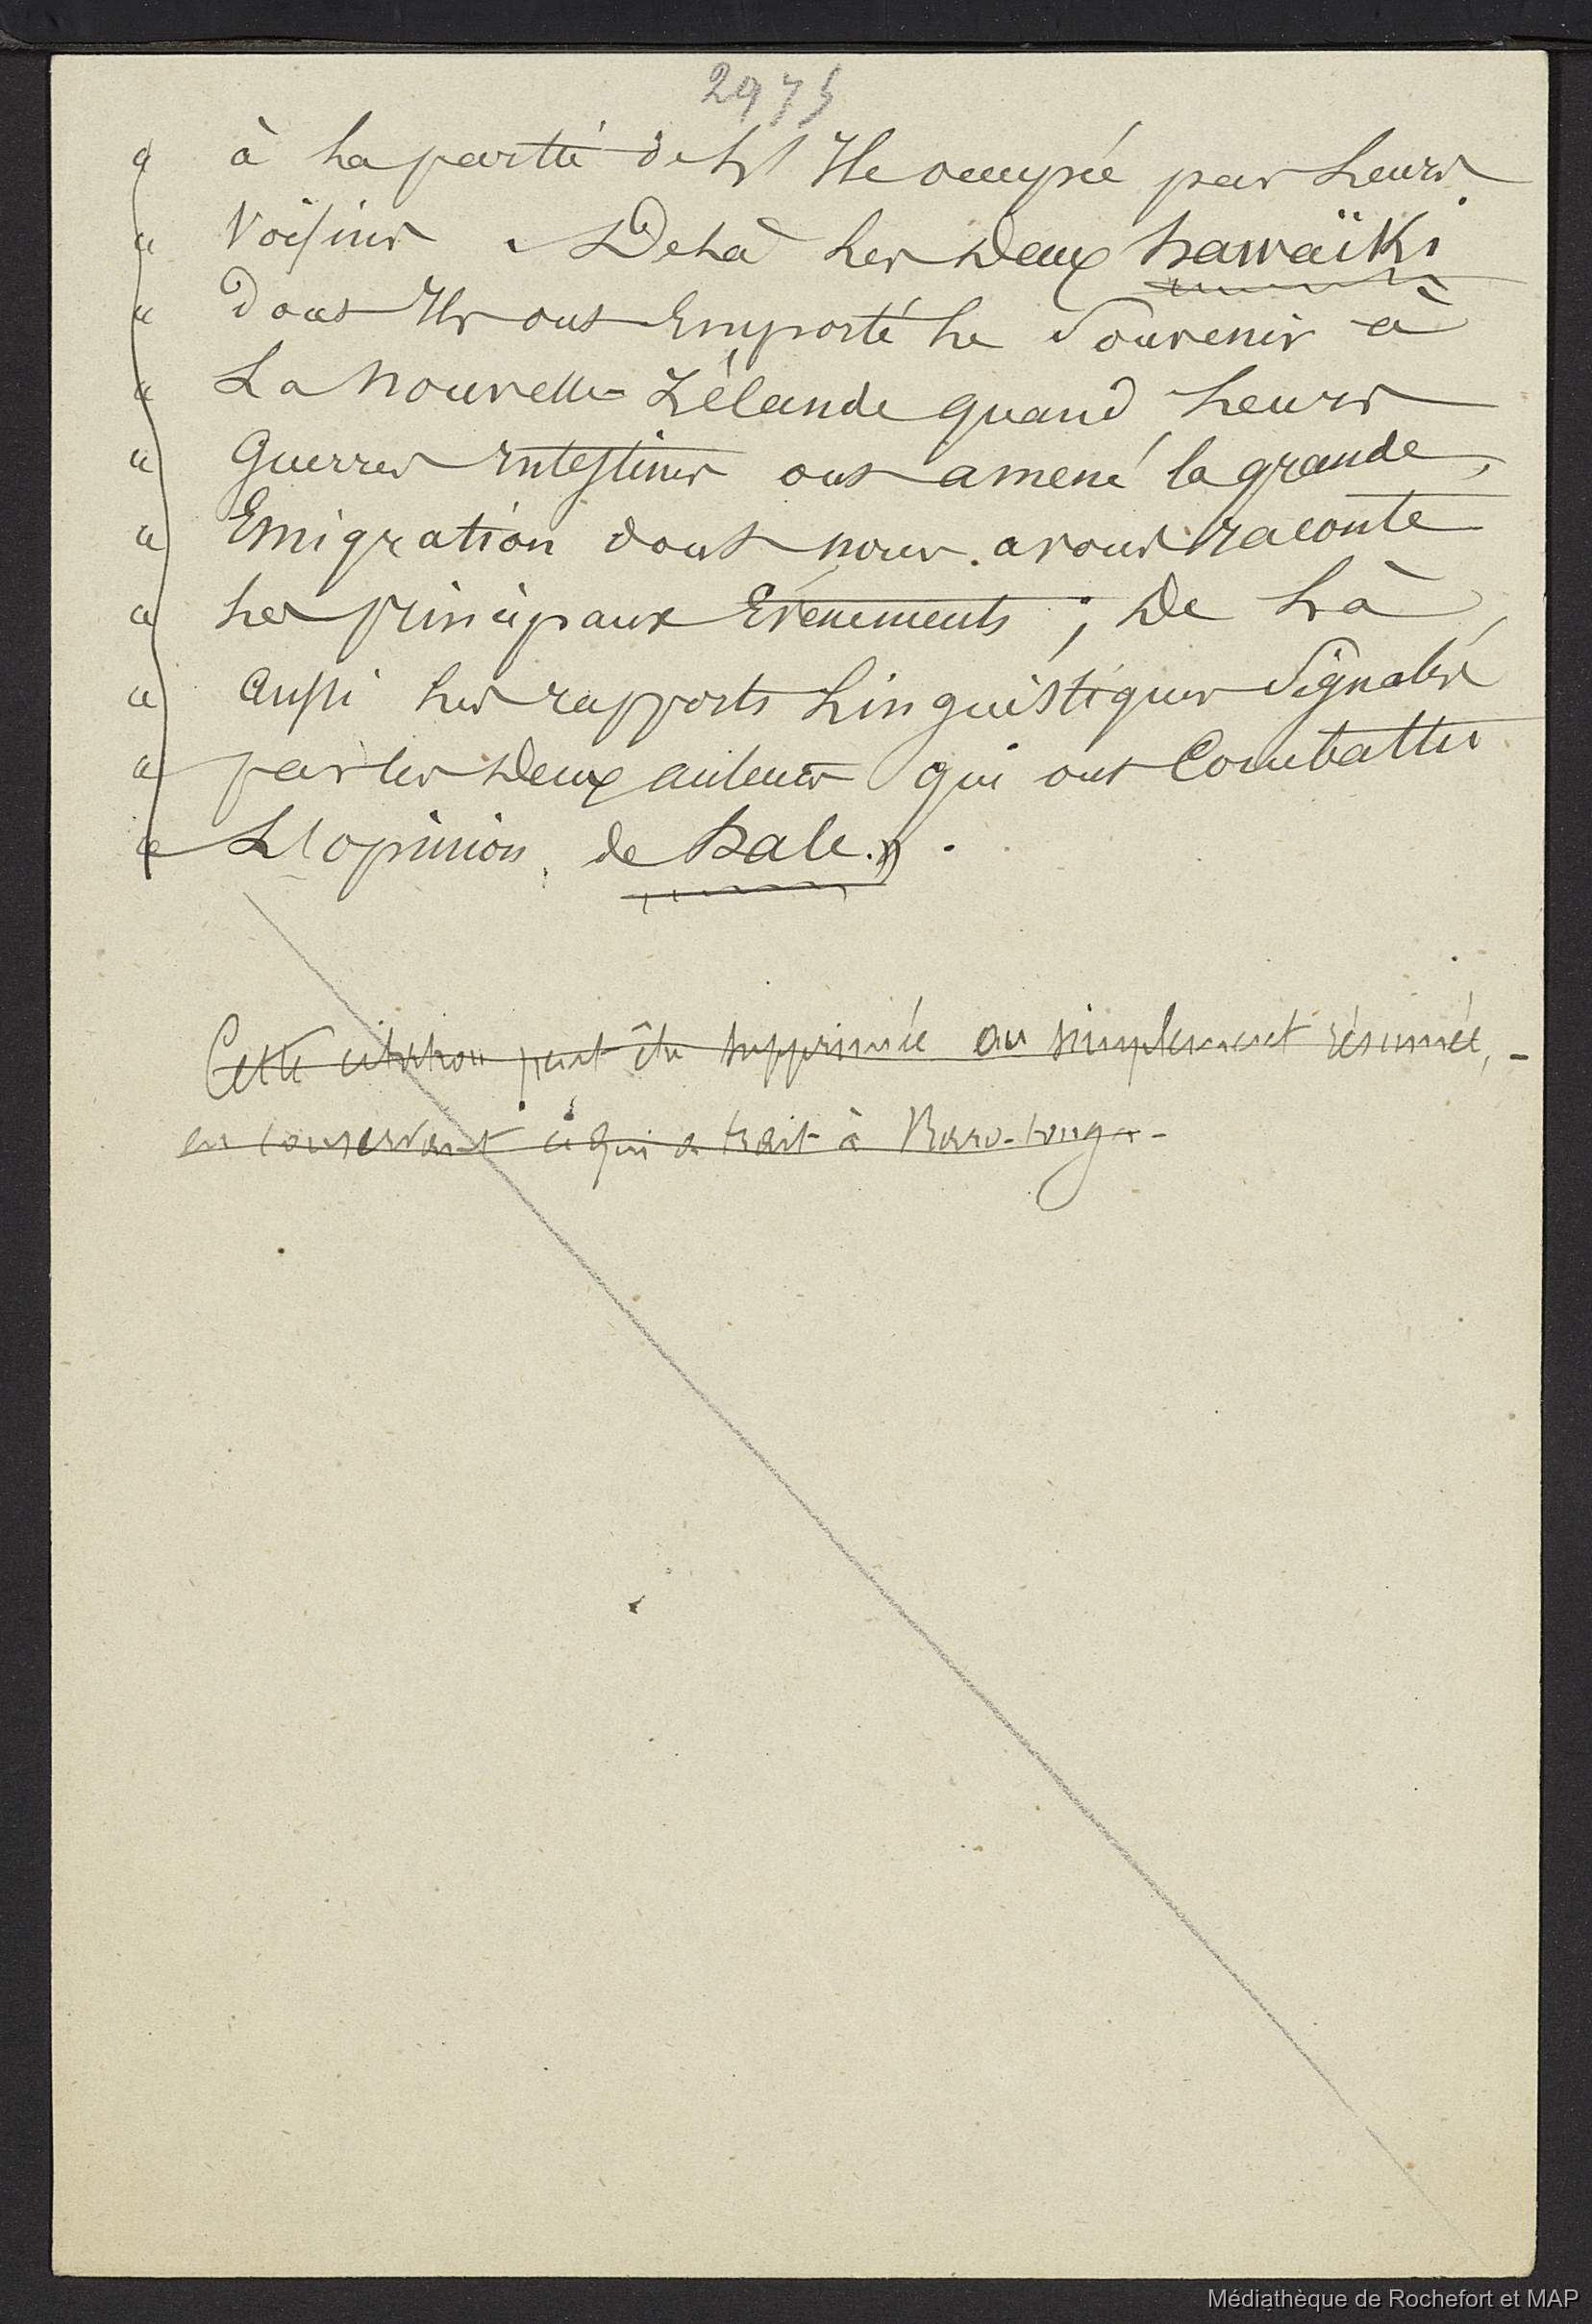 2975
" à La partie de L' Ile occupée par Leurs
" Voisins. De Là Les Deux hawaïki
" dont Ils ont Emporté Le Souvenir à
" La Nouvelle-Zélande quand Leurs
" Guerres Intestines ont amené la grande
" Emigration dont nous avons raconté
" Les principaux Evènements ; De Là
" aussi Les rapports Linguistiques Signalés
" par les Deux auteurs qui ont Combattu
" L'opinion de hale. » .
Cette citation peut être supprimée ou simplement résumée, -
en conservant ce qui a trait à Raro-tonga -
Médiathèque de Rochefort et MAP